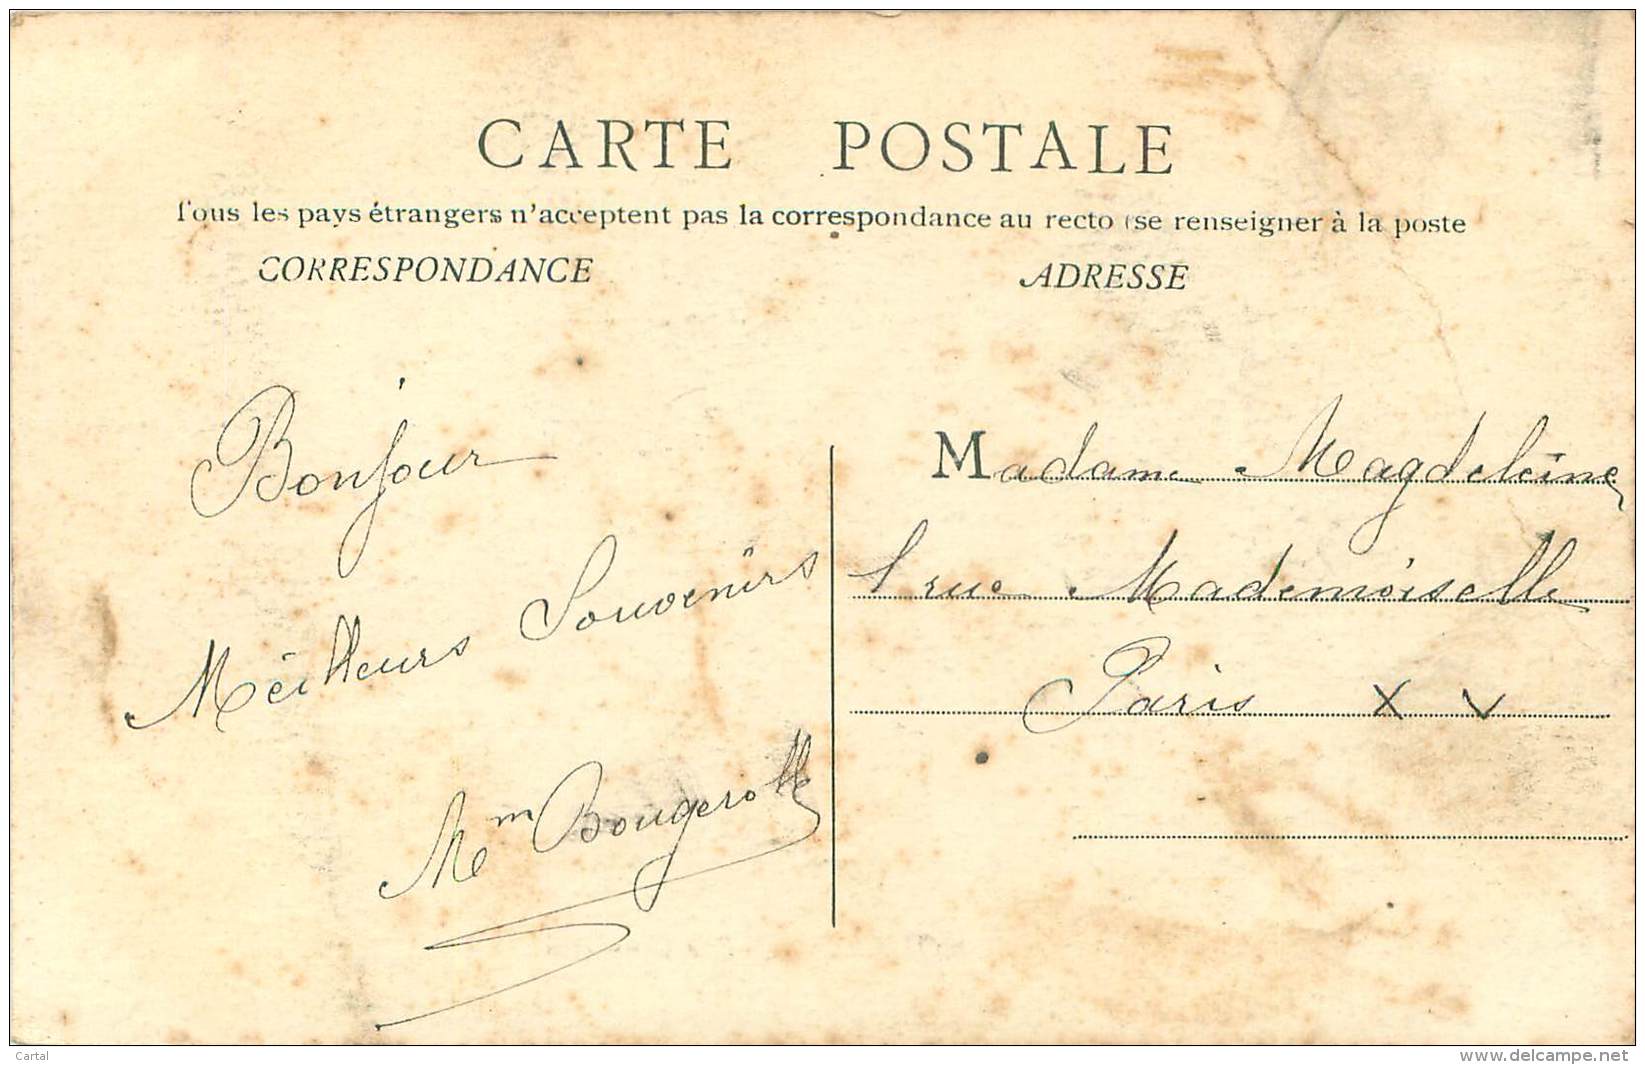 CARTE POSTALE
Tous les pays étrangers n'acceptent pas la correspondance au recto (se renseigner à la poste
CORRESPONDANCE
ADRESSE
Bonjour
Meilleurs Souvenirs
Mm Bougerolle
Madame Magdeleine
1 rue Mademoiselle
Paris XV
Cartal
www.delcampe.net